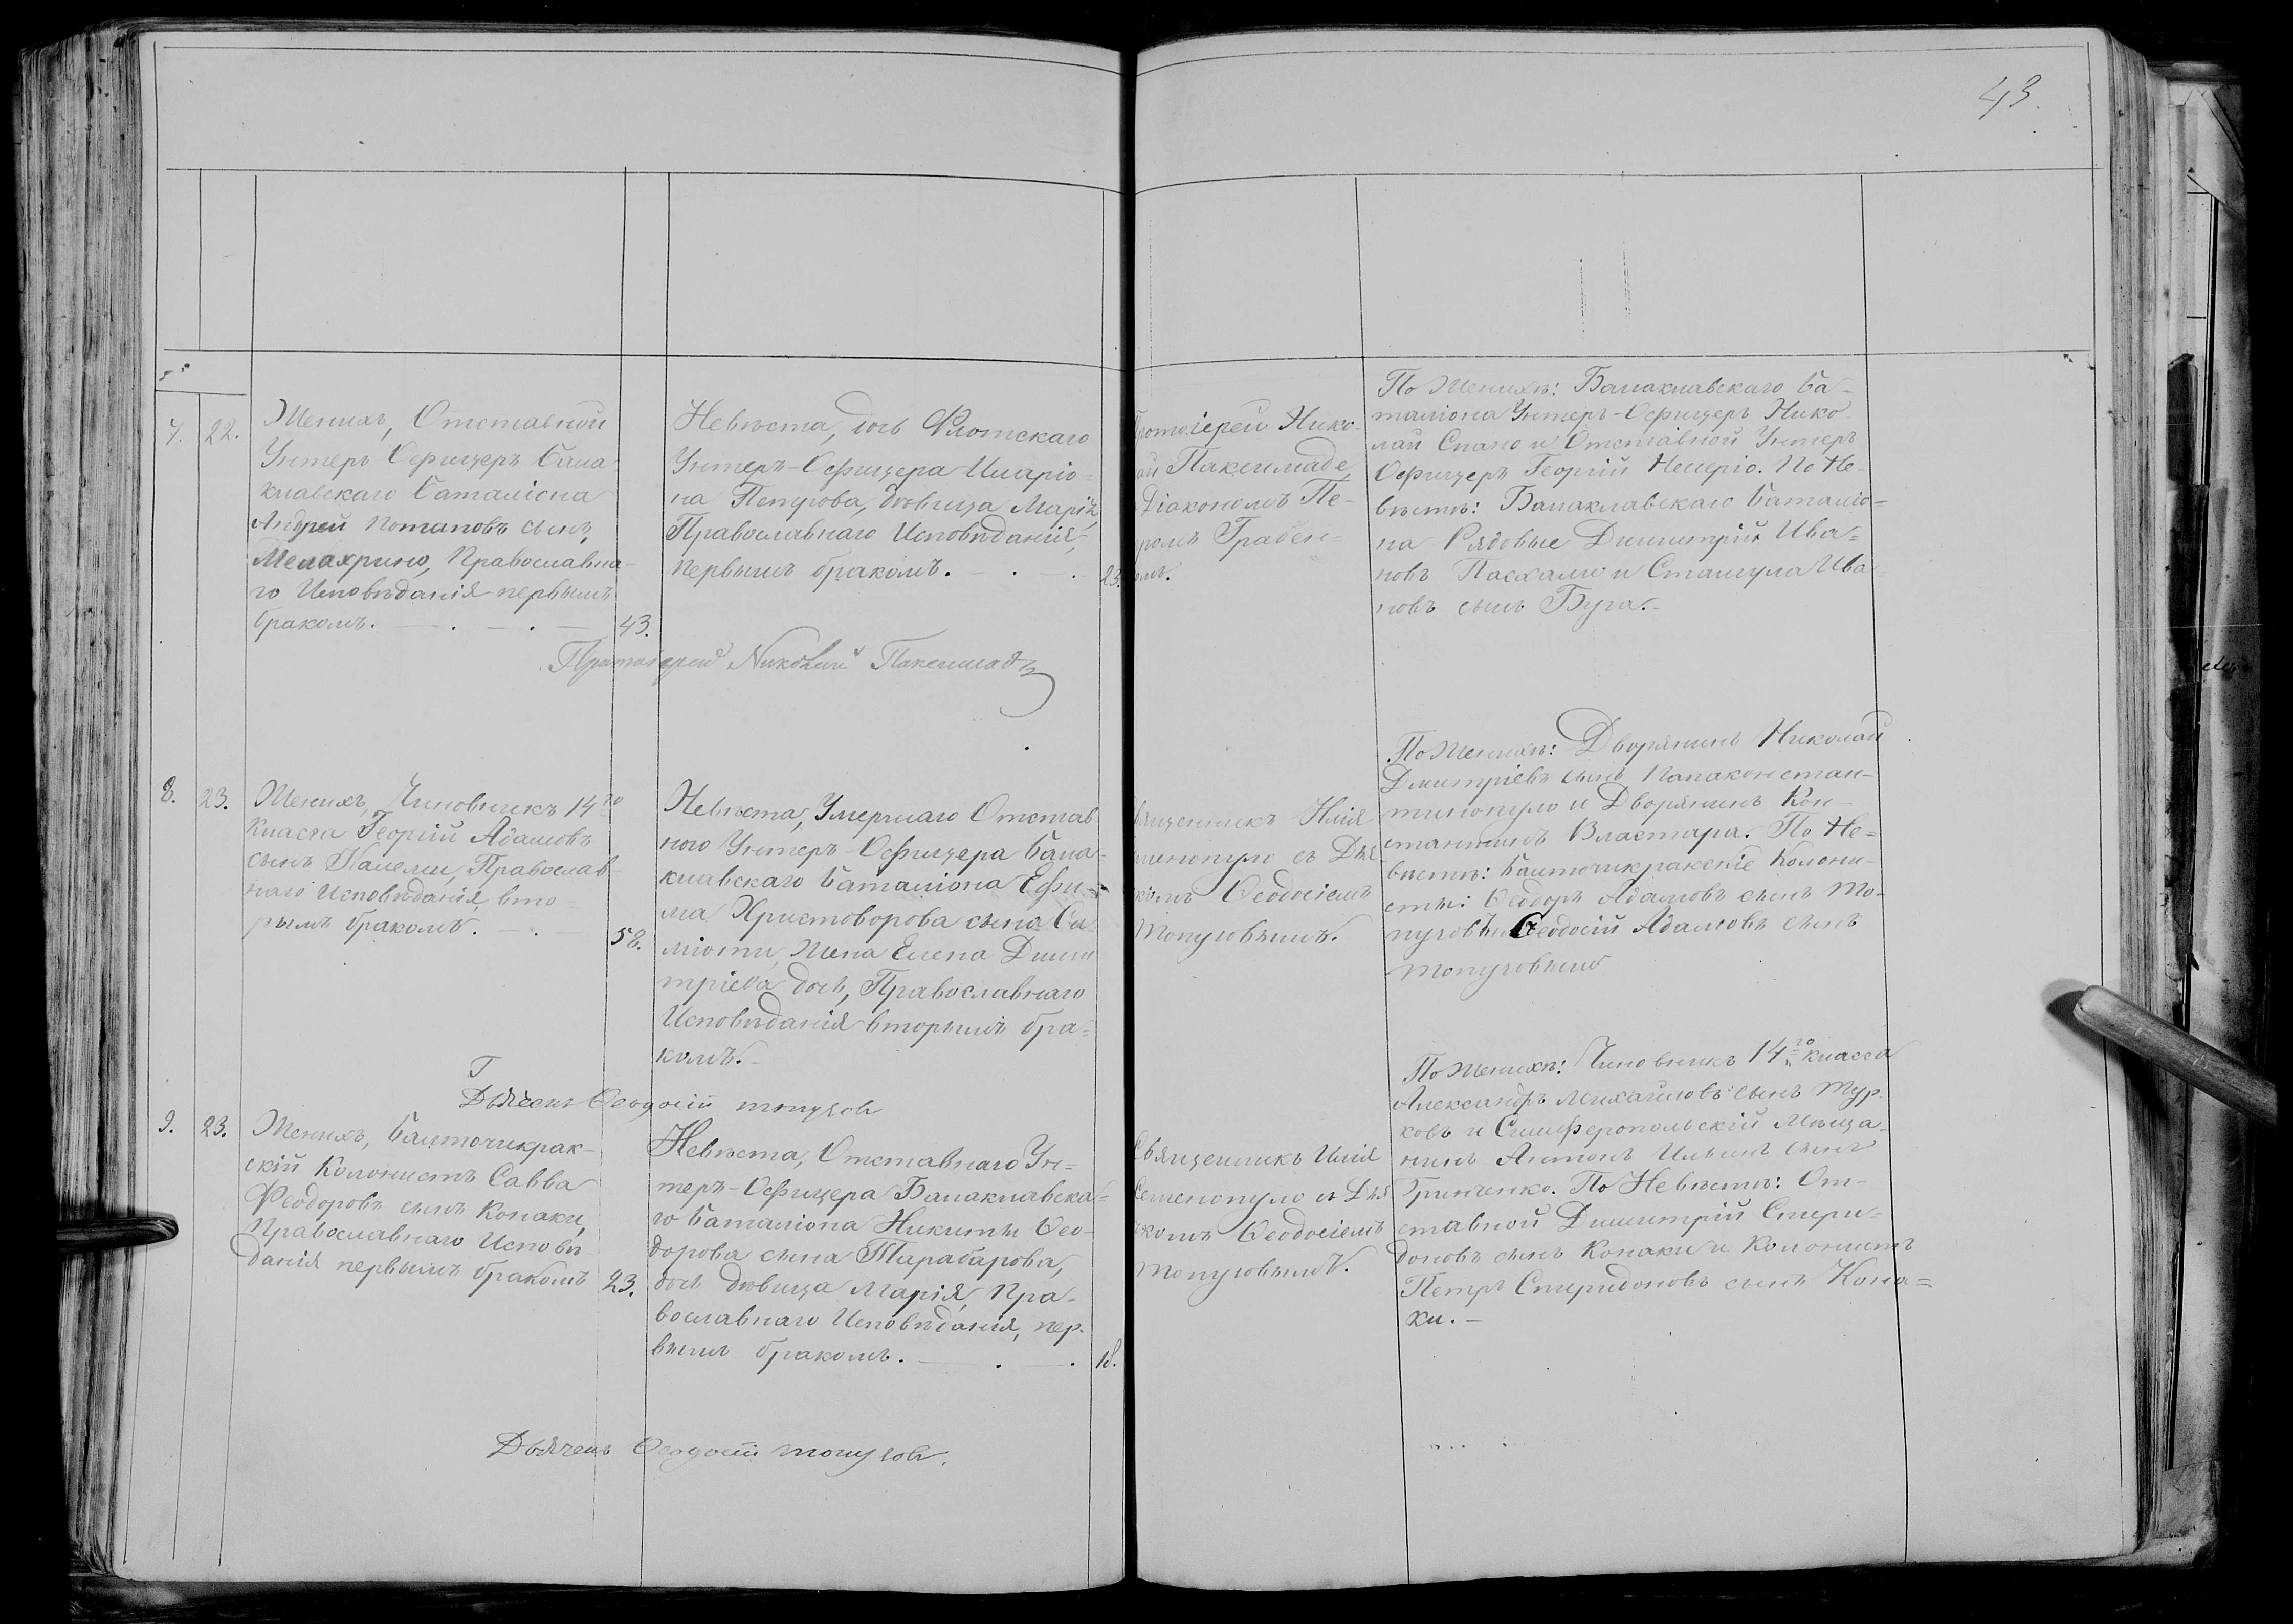 43.
7. 22.
Женихъ, Отставной
Унтеръ Офицеръ Бала-
клавскаго Баталіона
Андрей Потаповъ сынъ,
Мелахрино, Православна-
го Исповѣданія первымъ
бракомъ. 43.
Невѣста, дочь Флотскаго
Унтеръ-Офицера Иларіо-
на Петрова, дѣвица Марія,
Православнаго Исповѣданія,
первымъ бракомъ. 23.
Протоіерей Николай Паксимадъ
Протоіерей Нико-
лай Паксимаде
Діакономъ Пе-
тромъ Грабен-
омъ.
По Женихѣ: Балаклавскаго Ба-
таліона Унтеръ-Офицеръ Нико-
лай Спано и Отставной Унтеръ
Офицеръ Георгій Нелеріо. По Не-
вѣстѣ: Балаклавскаго Баталіо-
на Рядовые Димитрій Ива-
новъ Пасхали и Стамула Ива
новъ сынъ Буга.
8. 23.
Женихъ, Чиновникъ 14го
Класса Георгій Адамовъ
сынъ Капели, Православ-
наго Исповѣданія, вто-
рымъ бракомъ. 58.
Невѣста, Умершаго Отстав
ного Унтеръ-Офицера Бала-
клавскаго Баталіона Ефи-
ма Христофорова сына Са-
міоти, Жена Елена Дими
тріева дочь, Православнаго
Исповѣданія вторымъ бра-
комъ.
Дьячекъ Ѳеодосій Топузовъ
Священникъ Илія
Семенопуло съ Дья
комъ Ѳеодосіемъ
Топузовымъ.
По Женихѣ: Дворянинъ Николай
Дмитріевъ сынъ Папаконстан-
тинопуло и Дворянинъ Кон-
стантинъ Властара. По Не-
вѣстѣ: Балточикракскіе Колони-
сты: Ѳеодоръ Адамовъ сынъ То-
пузовъ и Ѳеодосій Адамовъ сынъ
Топузовымъ
9. 23.
Женихъ, Балточикрак-
скій Колонистъ Савва
Феодоровъ сынъ Конаки,
Православнаго Исповѣ-
данія первымъ бракомъ 23.
Невѣста, Отставнаго Ун-
теръ-Офицера Балаклавска-
го Баталіона Никиты Ѳео-
дорова сына Тирабарова,
дочь дѣвица Марія, Пра-
вославнаго Исповѣданія, пер-
вымъ бракомъ. 18.
Дьячекъ Ѳеодосій Топузовъ.
Священникъ Илія
Семенопуло съ Дья
комъ Ѳеодосіемъ
Топузовымъ.
По Женихѣ: Чиновникъ 14го класса
Александръ Михайловъ сынъ Тур-
ковъ и Симферопольскій Мѣща-
нинъ Антонъ Ильинъ сынъ
Гринченко. По Невѣстѣ: От-
ставной Димитрій Спири-
доновъ сынъ Конаки и Колонистъ
Петръ Спиридоновъ сынъ Кона-
ки.